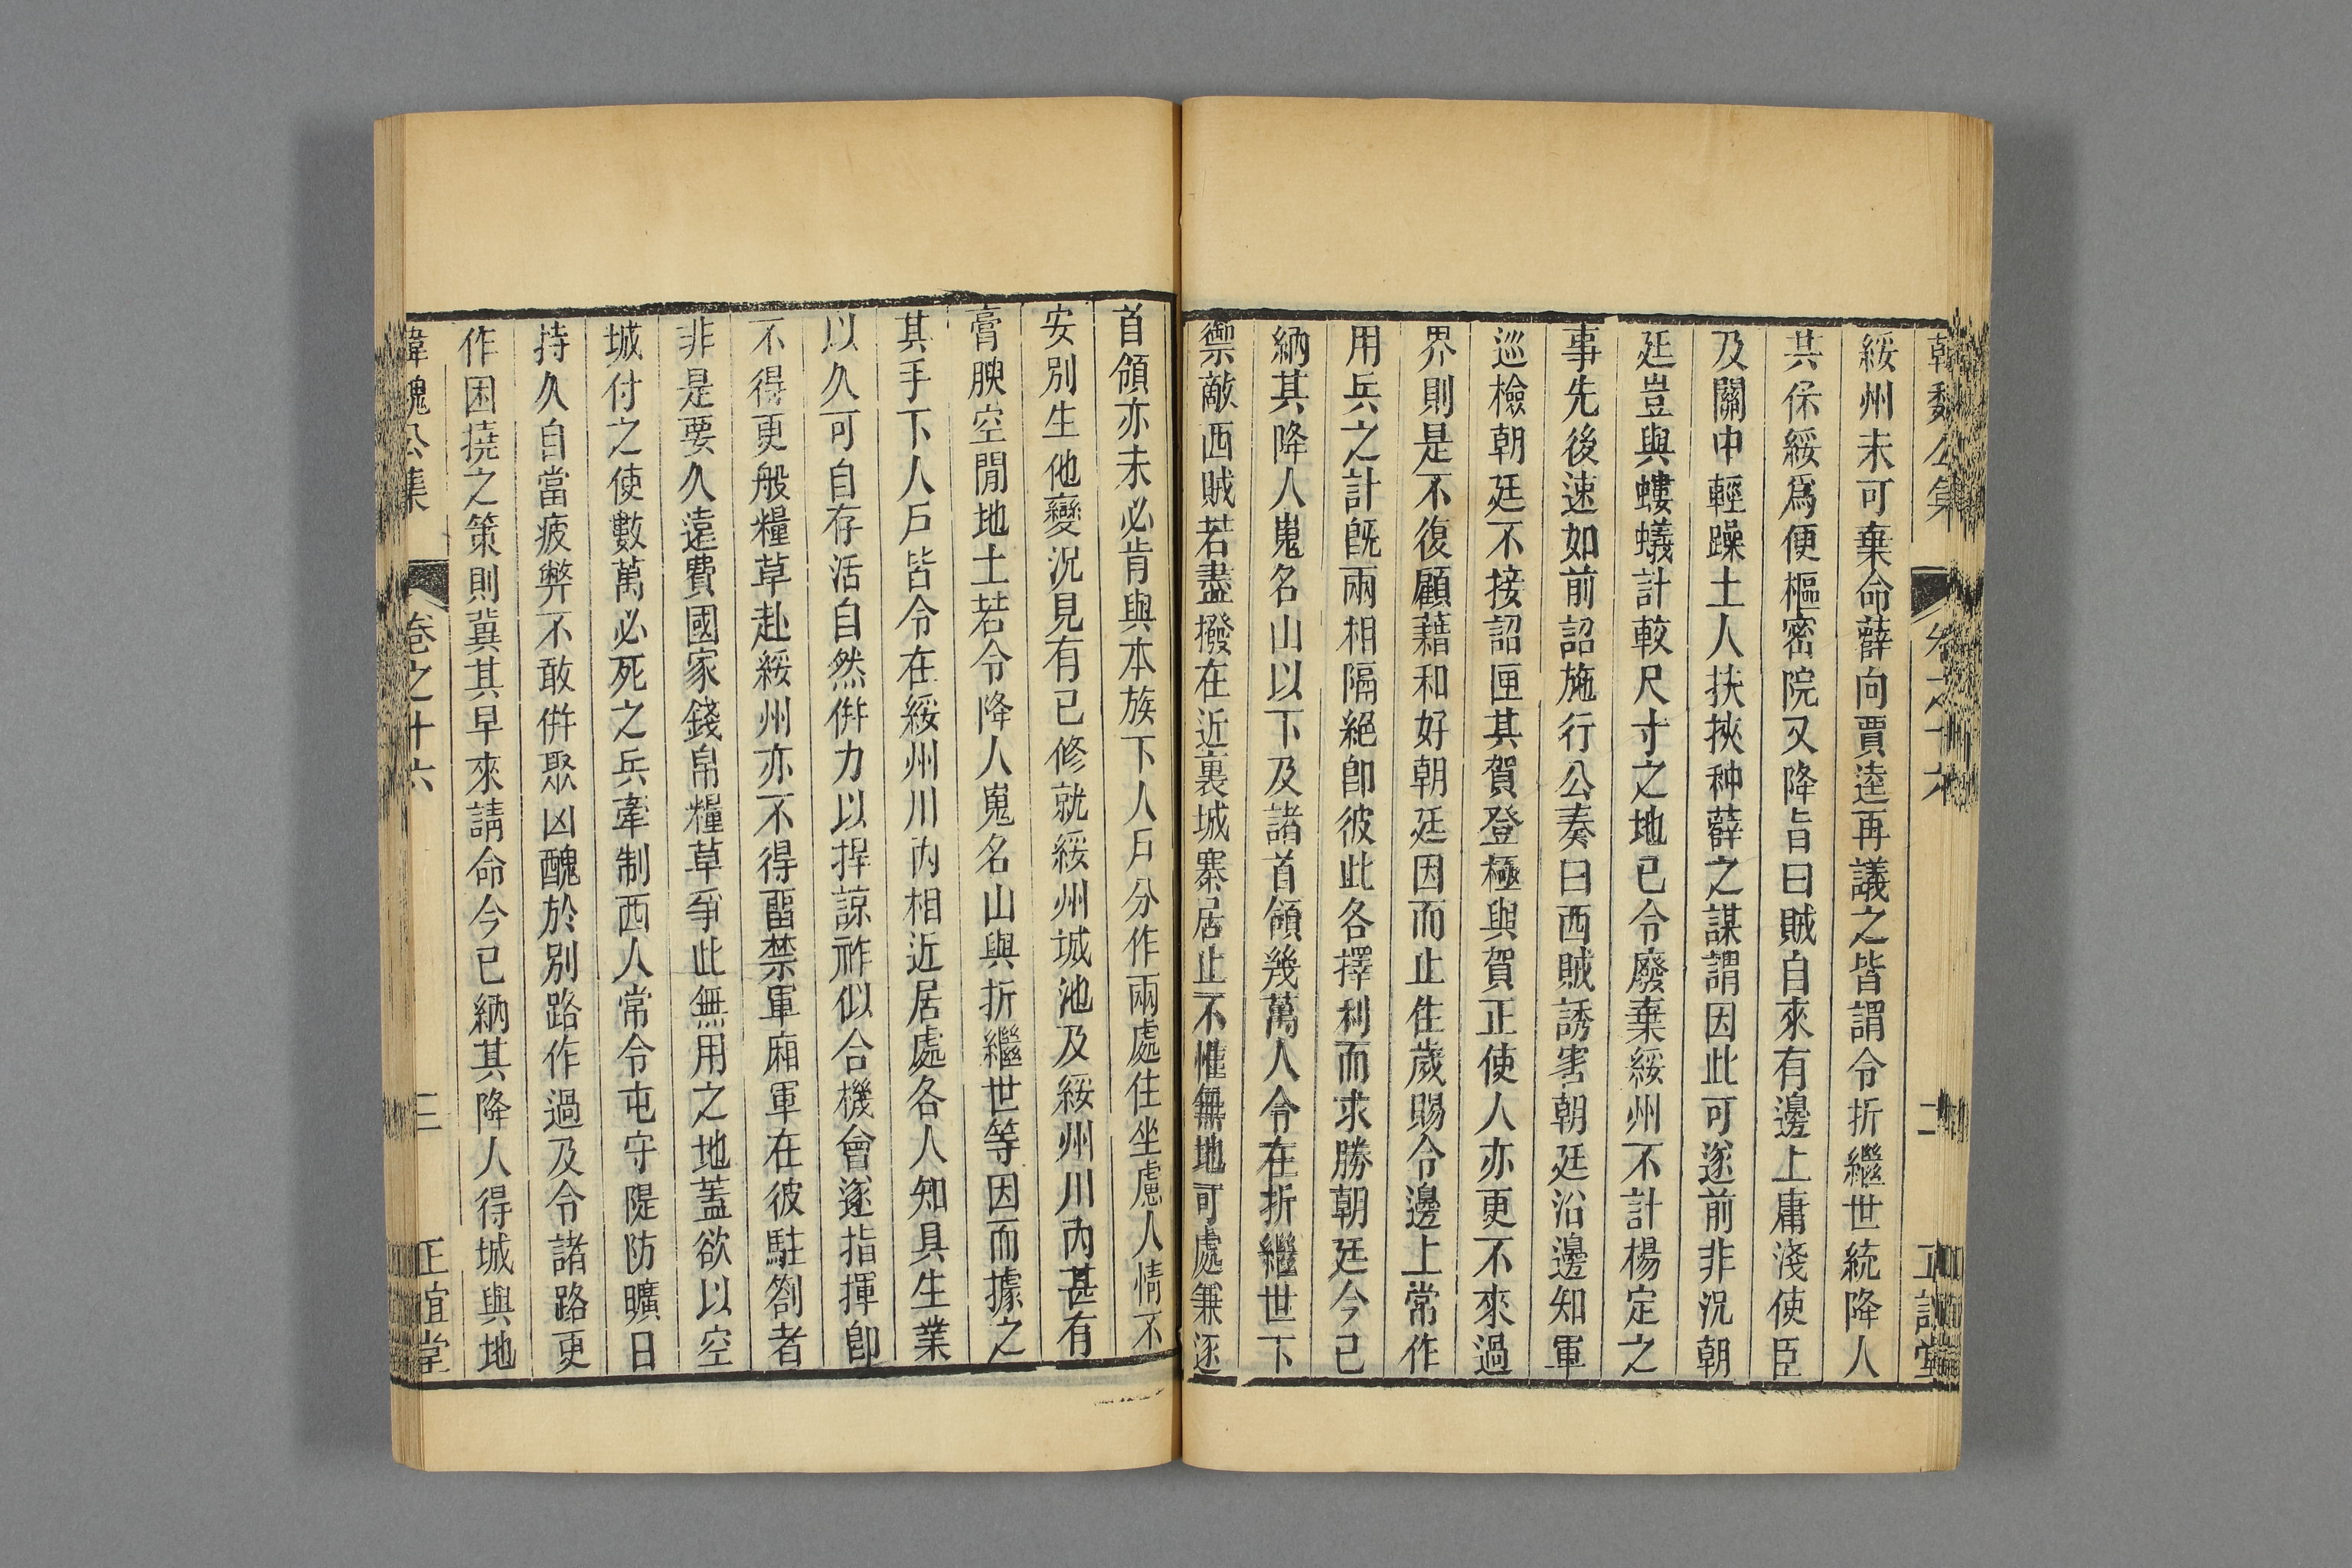 韓魏公集 卷之十六 二 正誼堂
綏州未可棄命薛向賈逵再議之皆謂令折繼世統降人
共保綏爲便樞密院又降旨曰賊自來有邊上庸淺使臣
及關中輕躁士人扶挾种薛之謀謂因此可遂前非況朝
廷豈與螻蟻計較尺寸之地已令廢棄綏州不計楊定之
事先後速如前詔施行公奏曰西賊誘害朝廷沿邊知軍
巡檢朝廷不接詔匣其賀登極與賀正使人亦更不來過
界則是不復顧藉和好朝廷因而止住歲賜令邊上常作
用兵之計旣兩相隔絕卽彼此各擇利而求勝朝廷今已
納其降人嵬名山以下及諸首領幾萬人令在折繼世下
禦敵西賊若盡撥在近裏城寨居止不惟無地可處兼逐
首領亦未必肯與本族下人戶分作兩處住坐慮人情不
安別生他變況見有已修就綏州城池及綏州川內甚有
膏腴空閒地土若令降人嵬名山與折繼世等因而據之
其手下人戶皆令在綏州川內相近居處各人知具生業
以久可自存活自然併力以捍諒祚似合機會遂指揮卽
不得更般糧草赴綏州亦不得畱禁軍廂軍在彼駐劄者
非是要久遠費國家錢帛糧草爭此無用之地蓋欲以空
城付之使數萬必死之兵牽制西人常令屯守隄防曠日
持久自當疲弊不敢併聚凶醜於別路作過及令諸路更
作困撓之策則冀其早來請命今已納其降人得城與地
韓魏公集 卷之十六 三 正誼堂